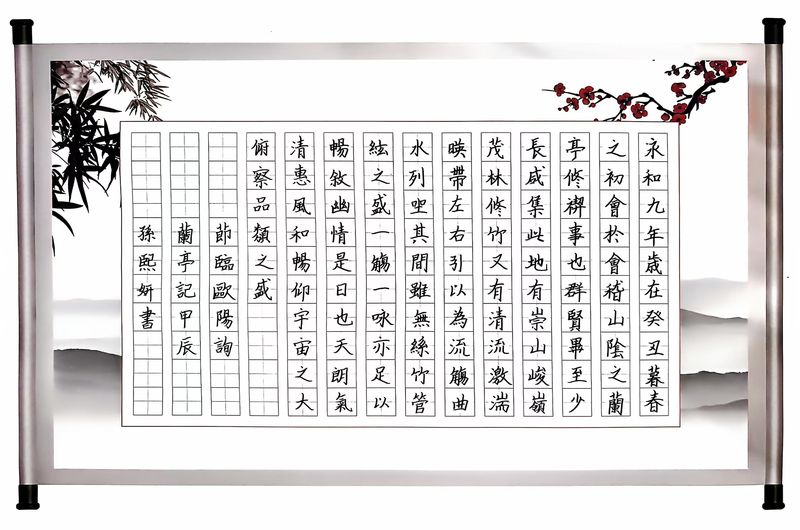 永和九年歲在癸丑暮春
之初會於會稽山陰之蘭
亭修禊事也群賢畢至少
長咸集此地有崇山峻嶺
茂林修竹又有清流激湍
暎帶左右引以為流觴曲
水列坐其間雖無絲竹管
絃之盛一觴一咏亦足以
暢敘幽情是日也天朗氣
清惠風和暢仰宇宙之大
俯察品類之盛
節臨歐陽詢
蘭亭記甲辰
孫熙妍書